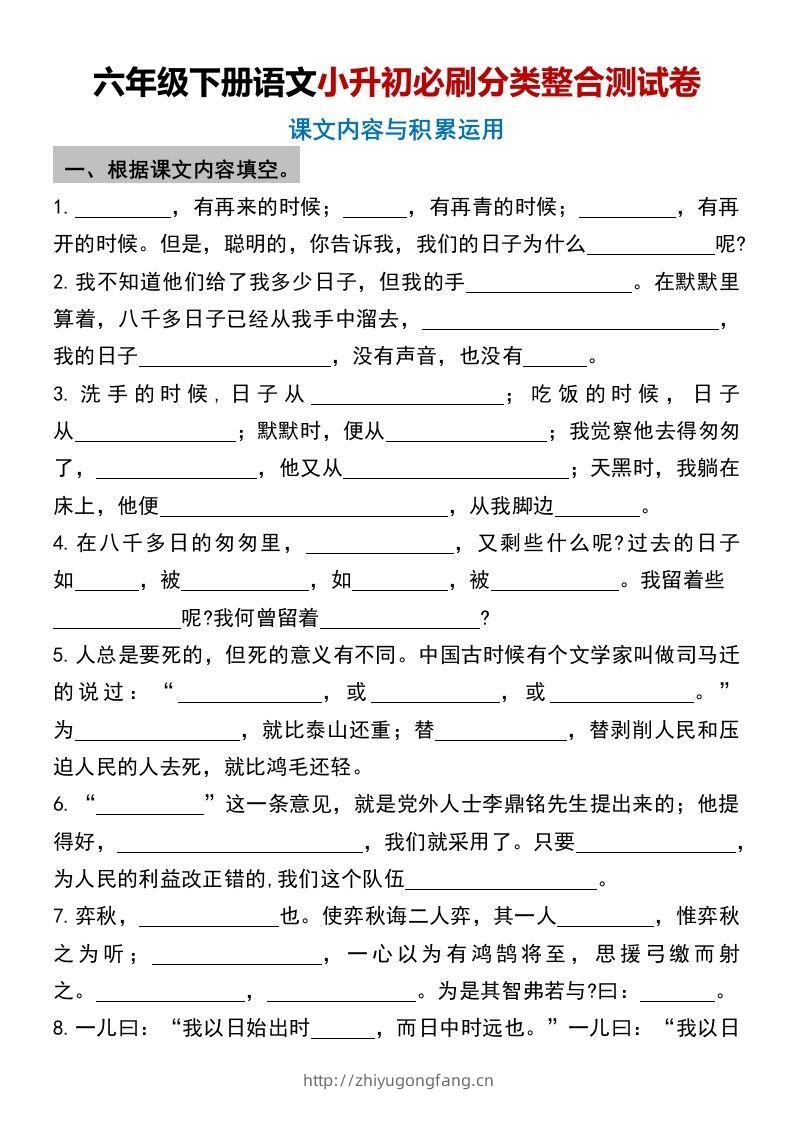 六年级下册语文小升初必刷分类整合测试卷
课文内容与积累运用
一、根据课文内容填空。
1. _________，有再来的时候；______，有再青的时候；_________，有再
开的时候。但是，聪明的，你告诉我，我们的日子为什么____________呢?
2. 我不知道他们给了我多少日子，但我的手________________。在默默里
算着，八千多日子已经从我手中溜去，____________________________，
我的日子__________________，没有声音，也没有______。
3. 洗手的时候,日子从__________________；吃饭的时候，日子
从_______________；默默时，便从_______________；我觉察他去得匆匆
了，_______________，他又从_____________________；天黑时，我躺在
床上，他便___________________________，从我脚边________。
4. 在八千多日的匆匆里，______________，又剩些什么呢?过去的日子
如______，被____________，如_________，被____________。我留着些
____________呢?我何曾留着_______________?
5. 人总是要死的，但死的意义有不同。中国古时候有个文学家叫做司马迁
的说过：“_____________，或____________，或_____________。”
为_______________，就比泰山还重；替____________，替剥削人民和压
迫人民的人去死，就比鸿毛还轻。
6. “__________”这一条意见，就是党外人士李鼎铭先生提出来的；他提
得好，_______________________，我们就采用了。只要_______________，
为人民的利益改正错的,我们这个队伍__________________。
7. 弈秋，_____________也。使弈秋诲二人弈，其一人_________，惟弈秋
之为听；________________，一心以为有鸿鹄将至，思援弓缴而射
之。______________，______________。为是其智弗若与?曰：_______。
8. 一儿曰：“我以日始出时______，而日中时远也。”一儿曰：“我以日
http://zhiyugongfang.cn